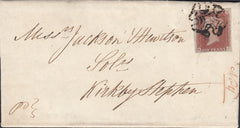 Mess.rs Jackson & Hewitson
Sol.rs
Kirkby Stephen